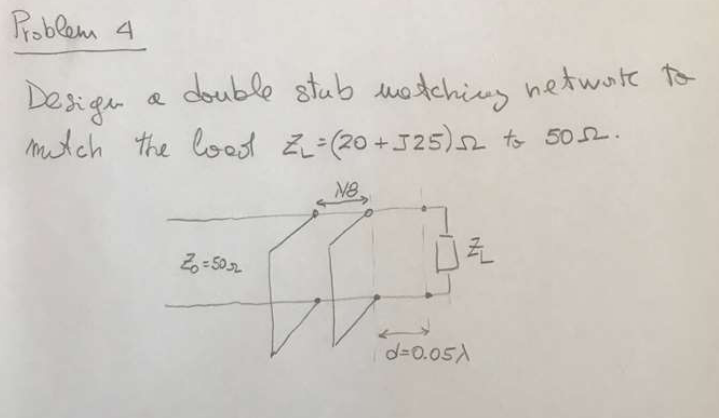 Problem 4
Design a double stub matching network to
match the load Z_L = (20 + J25) Ω to 50 Ω.
λ/8
Z₀ = 50 Ω
Z_L
d = 0.05 λ